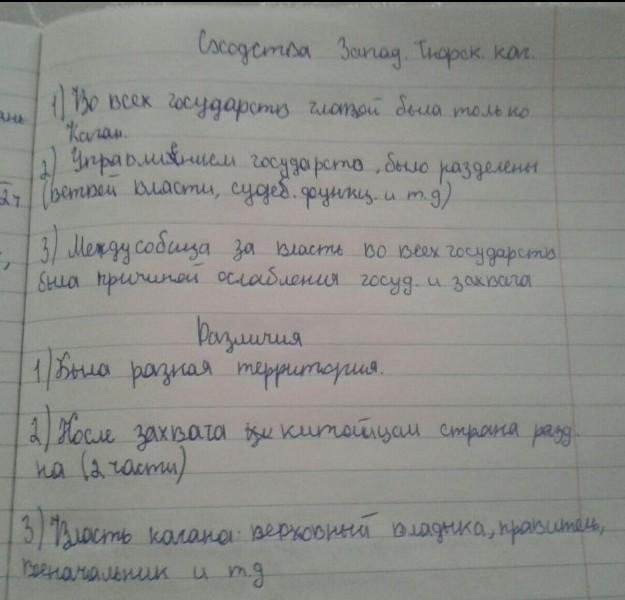 Сходства Запад. Тюрск. каг.
1) Во всех государств главой была только
Каган.
2) Управлением государств, было разделены
(ветвей власти, судеб. функц. и т.д)
3) Междусобица за власть во всех государств
была причиной ослабления госуд. и захвата
Различия
1) Была разная территория.
2) После захвата китайцам страна разд.
на (2 части)
3) Власть кагана: верховный владыка, правитель,
военачальник и т.д